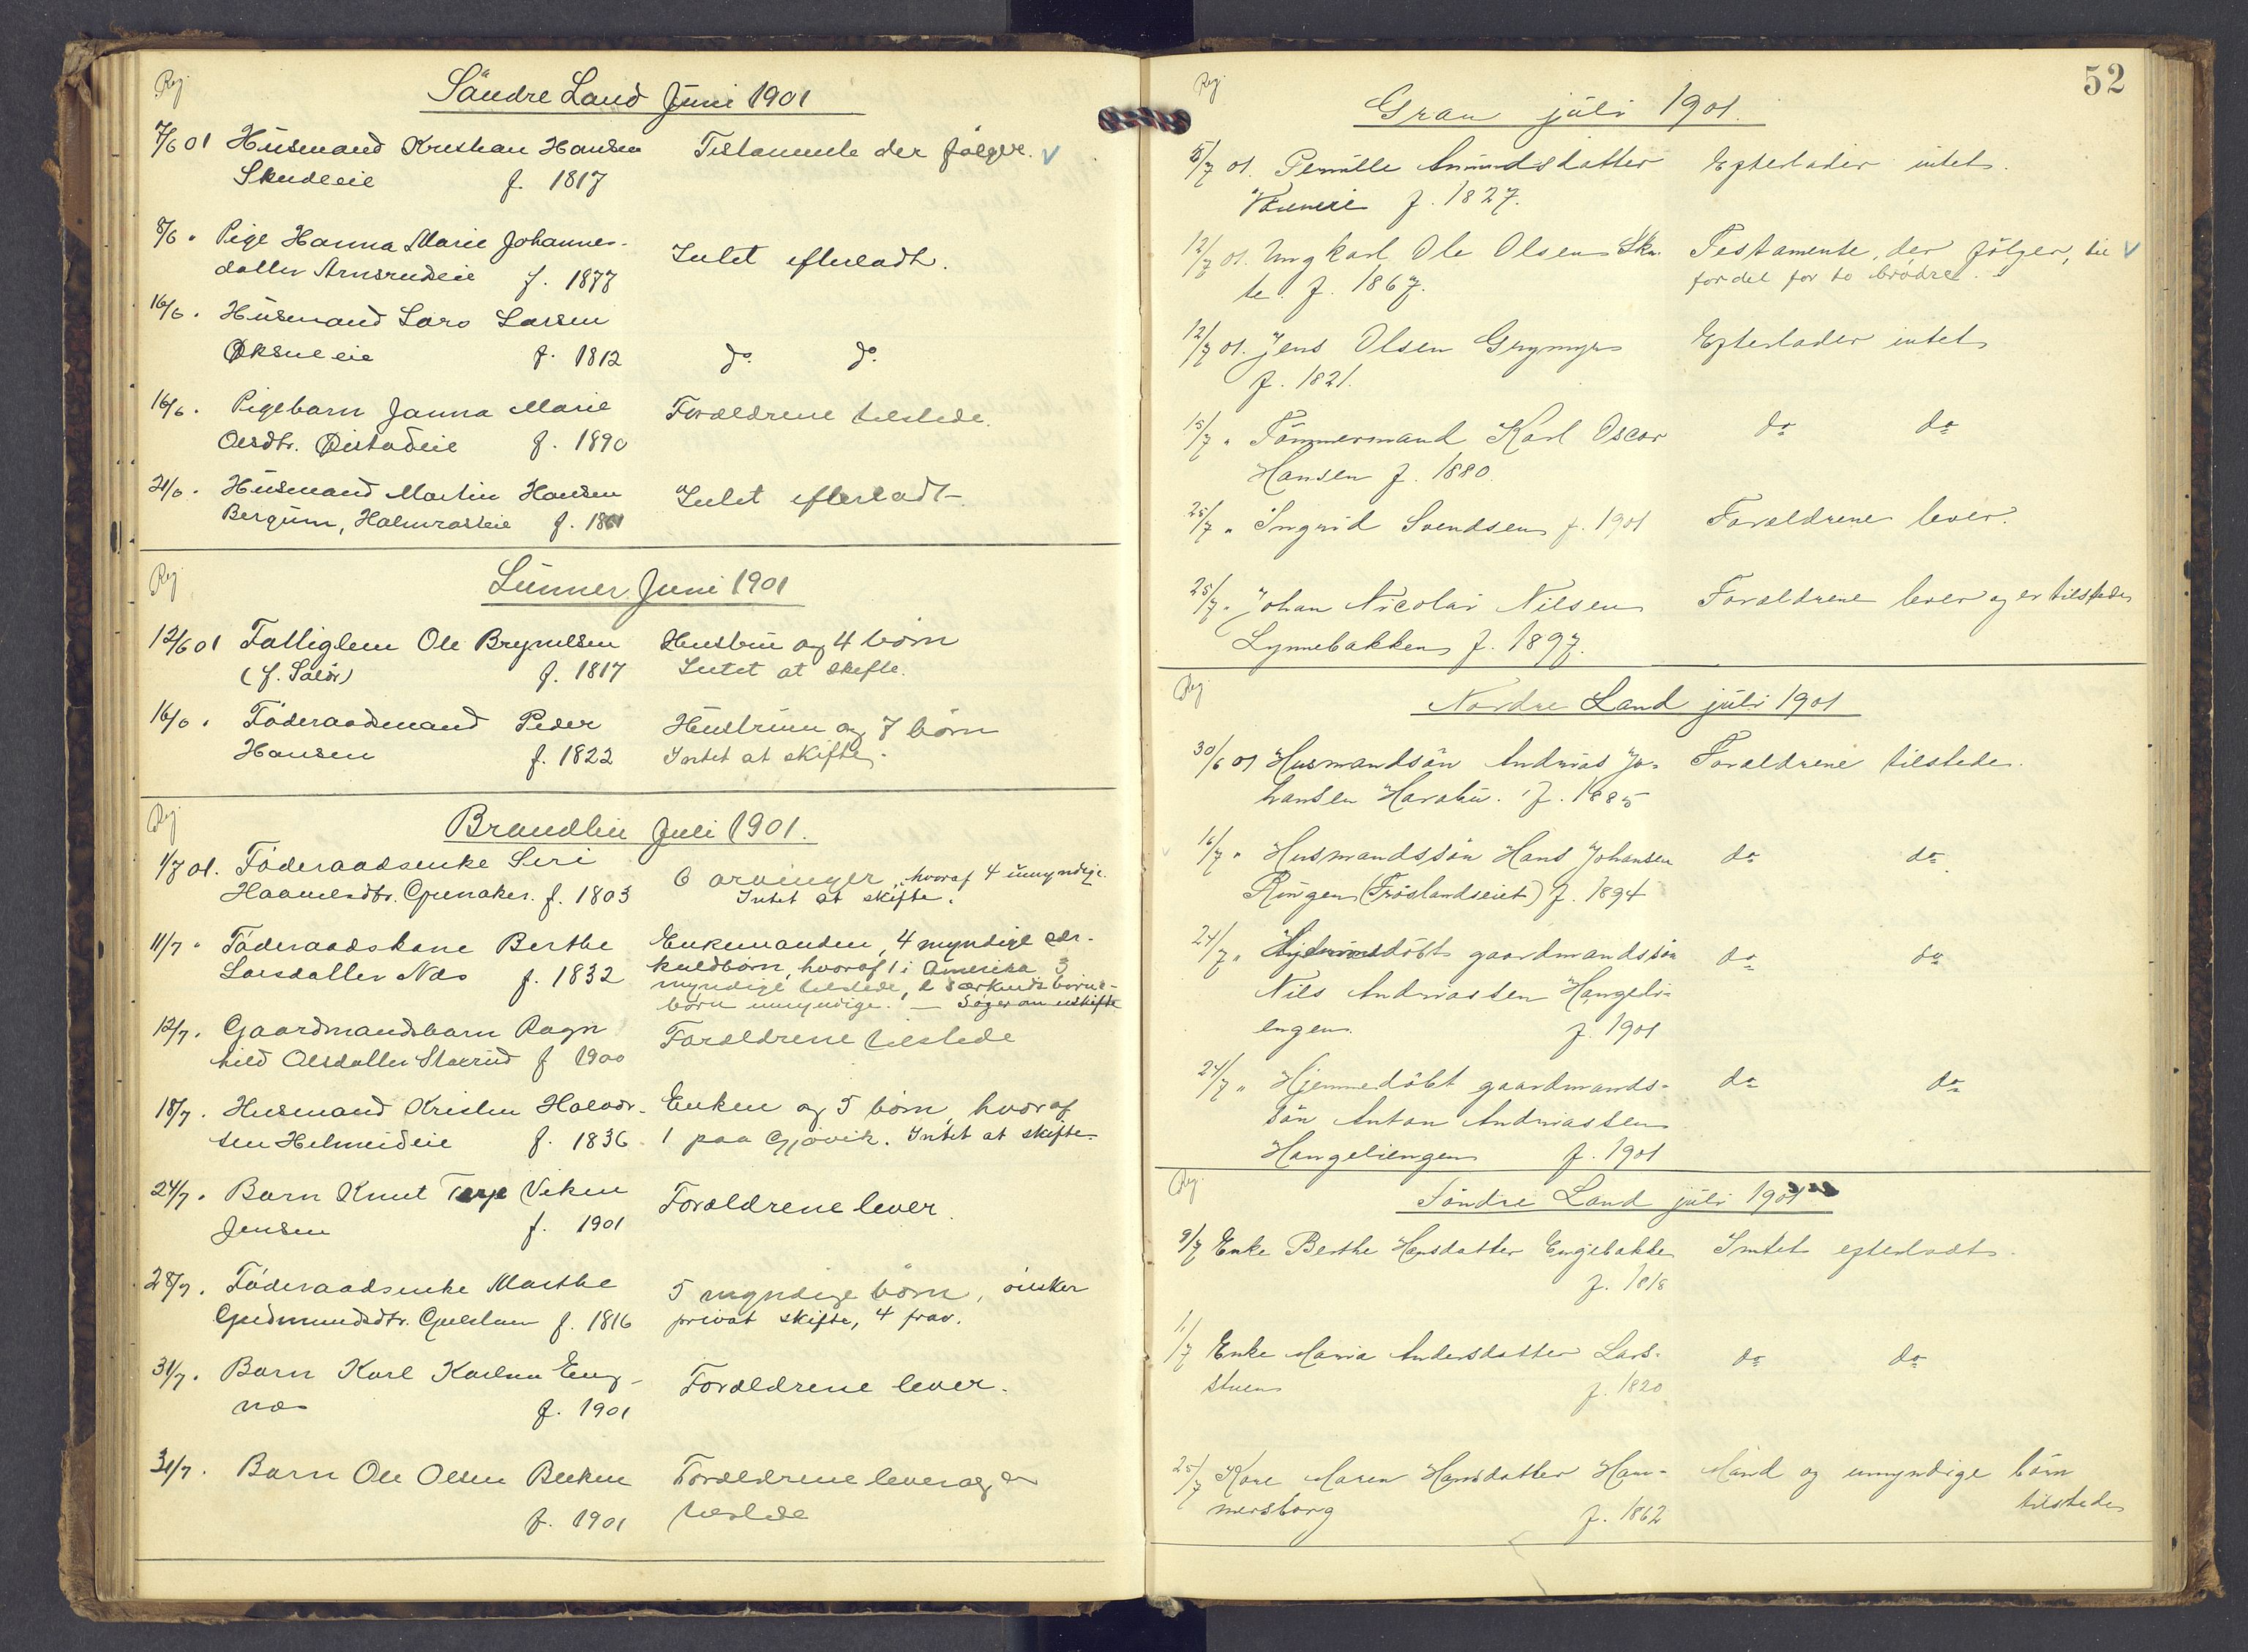 Reg.
Söndre Land Juni 1901
7/6 01 Husmand Kristian Hansen Testamente der følger. V
Skudeeie f. 1817
8/6 " Pige Hanna Marie Johannes-
datter Arnsrudeie f. 1877 Intet efterladt.
16/6 . Husmand Lars Larsen
f. 1812 do. do.
16/6 . Pigebarn Janna Marie Forældrene tilstede.
Olsdtr. f. 1890
21/6 . Husmand Martin Hansen Intet efterladt
Bergum, f.
Reg.
Lunner Juni 1901
12/6 01 Fattiglem Ole Brynildsen Hustru og 4 børn
f. 1817 Intet at skifte.
16/6 . Föderaadsmand Peder Hustruen og 7 børn
Hansen f. 1822 Intet at skifte.
Reg.
Brandbu Juli 1901.
1/7 01. Föderaadsenke Siri 6 arvinger, hvoraf 4 umyndige.
f. 1803 Intet at skifte.
11/7 " Föderaadskone Berthe Enkemanden, 4 myndige sær-
Larsdatter Næs f. 1832 kuldbørn, hvoraf 1 i Amerika 3
myndige tilstede, 2 særkuldsbørns-
børn umyndige. — Søger om uskifte
12/7 . Gaardmandsbarn Ragn Forældrene tilstede
hild Olsdatter f 1900
18/7 . Husmand Kristen Halvor- Enken og 5 børn, hvoraf
sen Helmeideie f. 1836 1 paa Gjøvik. Intet at skifte
24/7 . Barn Knut Terje Viken Forældrene lever.
Jensen f. 1901
28/7 . Föderaadsenke Marthe 5 myndige børn, ønsker
Gudmundsdtr. f. 1816 privat skifte, 4 frav.
31/7 . Barn Karl Karlsen Eng- Forældrene lever.
næs f. 1901
31/7 . Barn Ole Olsen Forældrene lever og er
f. 1901 tilstede
52
Reg.
Gran juli 1901.
8/7 01. Pernille Amundsdatter Efterlader intet.
f. 1827.
12/7 01. Ungkarl Ole Olsen Testamente, der følger, til V
f. 1867. fordel for to brödre.
12/7 01. Jens Olsen Grymyr Efterlader intet
f. 1821.
15/7 " Tömmermand Karl Oscar do do
Hansen f. 1880.
25/7 " Ingrid Svendsen f. 1901 Forældrene lever.
25/7 " Johan Nicolai Nilsen Forældrene lever og er tilstede
Lynnebakken f. 1897.
Reg.
Nordre Land juli 1901
30/6 01 Husmandsön Andrias Jo- Forældrene tilstede.
hansen f. 1885
16/7 " Husmandssön Hans Johansen do do
Ringen (Fröslandseiet) f. 1894
24/7 " Hjemmedöbt gaardmandssön do do
Nils Andreassen Hangeli-
engen. f. 1901
24/7 " Hjemmedöbt gaardmands- do do
sön Anton Andreassen
Hangeliengen f. 1901
Reg.
Söndre Land juli 1901
9/7 Enke Berthe Hansdatter Engebakke Intet efterladt.
f. 1818
11/7 Enke Maria Andersdatter Lars- do do
stuen f. 1820
25/7 Kone Maren Hansdatter Ham- Mand og umyndige börn
mersborg f. 1862 tilstede